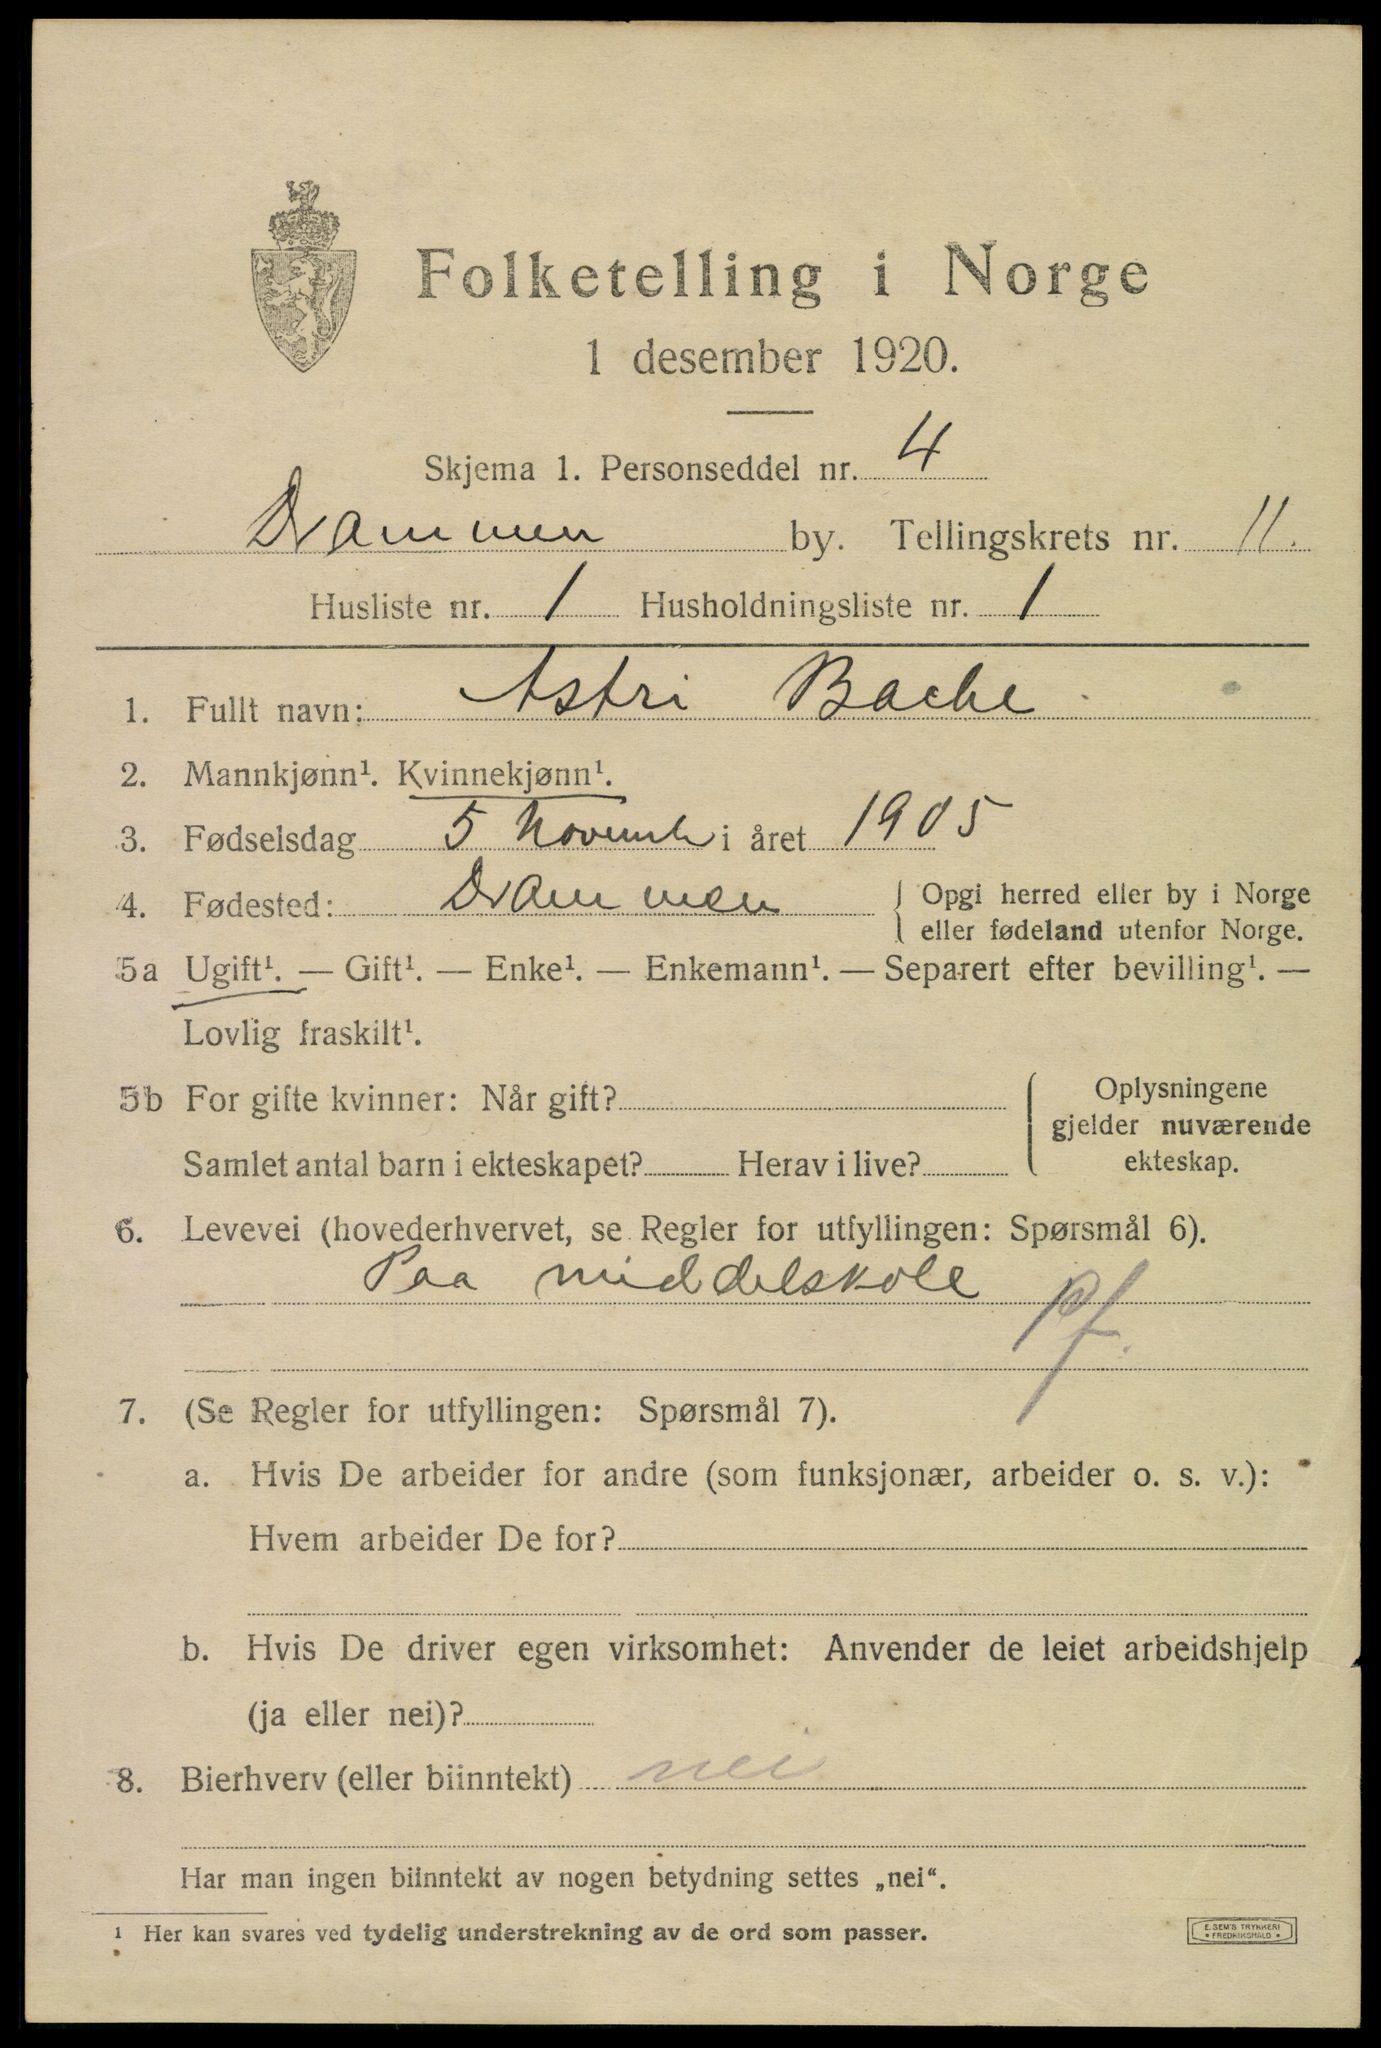 Folketelling i Norge
1 desember 1920.
Skjema 1. Personseddel nr. 4
Drammen by. Tellingskrets nr. 11.
Husliste nr. 1 Husholdningsliste nr. 1
1. Fullt navn: Astri Bache
2. Mannkjønn¹. Kvinnekjønn¹.
3. Fødselsdag 5 Novemb i året 1905
4. Fødested: Drammen { Opgi herred eller by i Norge
eller fødeland utenfor Norge.
5a Ugift¹. — Gift¹. — Enke¹. — Enkemann¹. — Separert efter bevilling¹. —
Lovlig fraskilt¹.
5b For gifte kvinner: Når gift?
Samlet antal barn i ekteskapet? Herav i live?
Oplysningene
gjelder nuværende
ekteskap.
6. Levevei (hovederhvervet, se Regler for utfyllingen: Spørsmål 6).
Paa middelskole
pf.
7. (Se Regler for utfyllingen: Spørsmål 7).
a. Hvis De arbeider for andre (som funksjonær, arbeider o. s. v.):
Hvem arbeider De for?
b. Hvis De driver egen virksomhet: Anvender de leiet arbeidshjelp
(ja eller nei)?
8. Bierhverv (eller biinntekt) nei
Har man ingen biinntekt av nogen betydning settes „nei“.
¹ Her kan svares ved tydelig understrekning av de ord som passer.
E. SEM'S TRYKKERI
• FREDRIKSHALD •